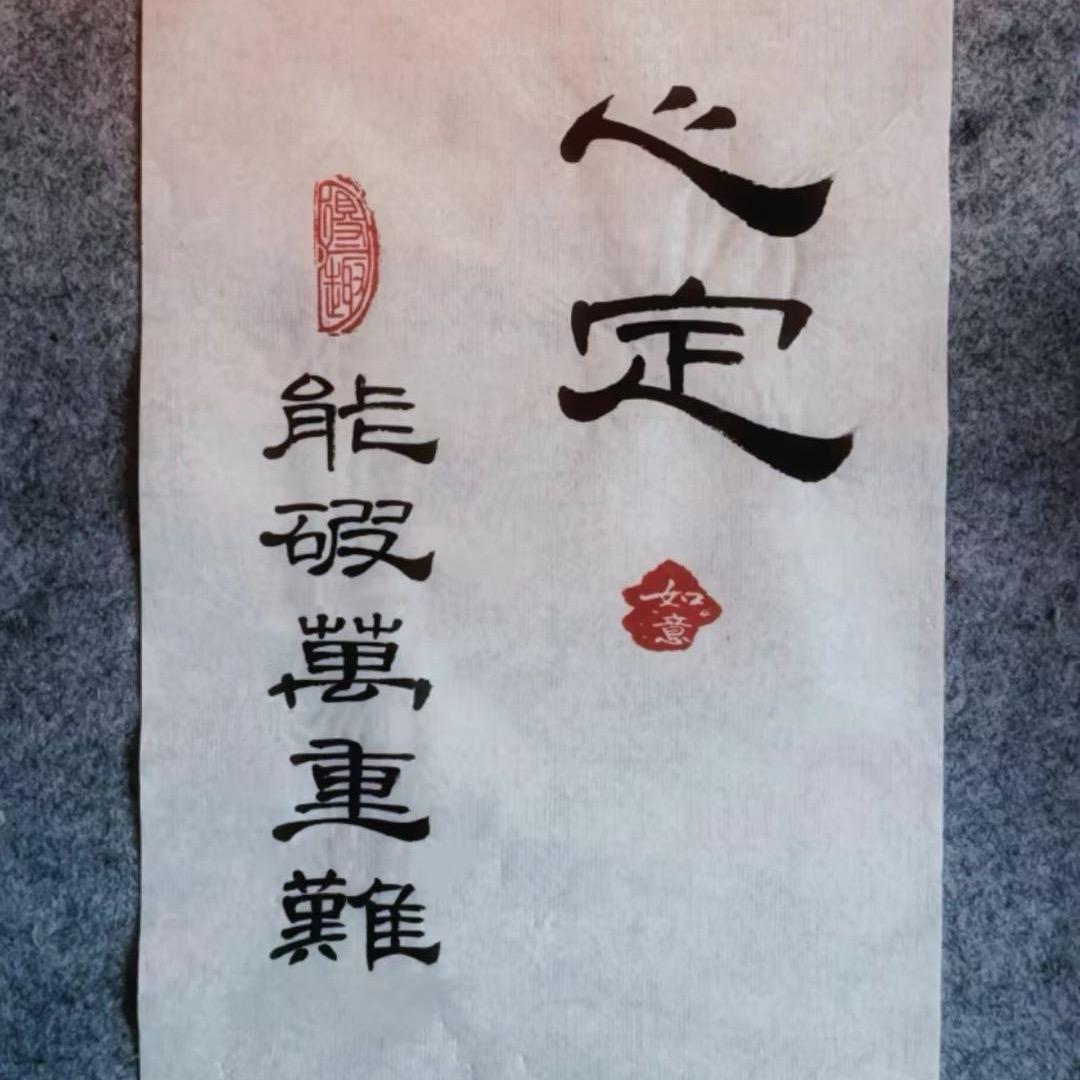 心定
如意
能破萬重難